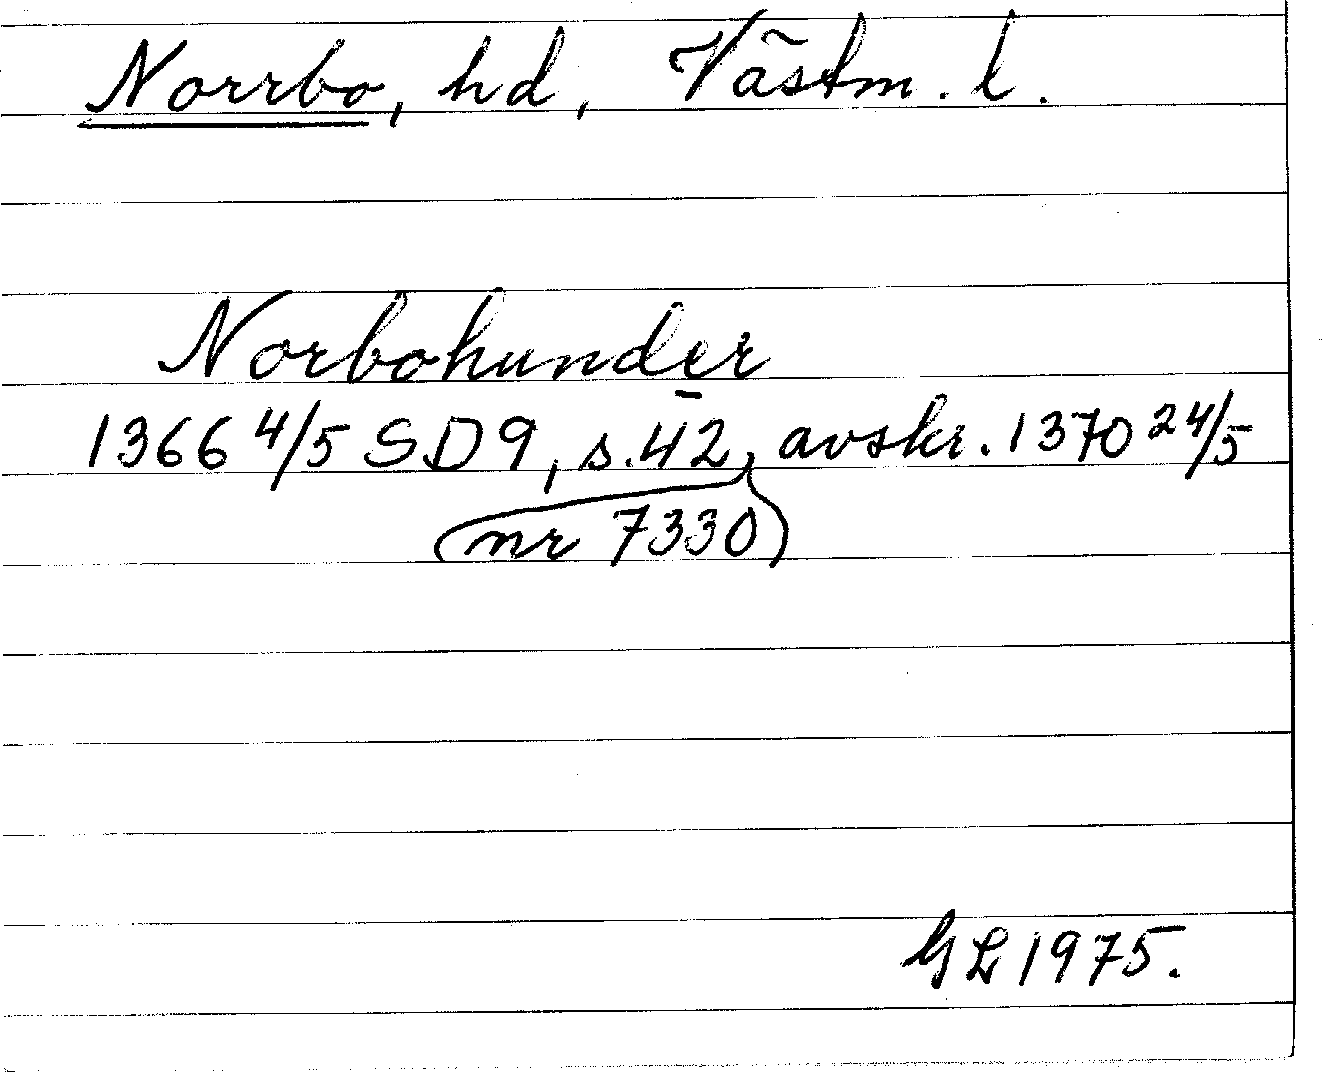 Norrbo, hd, Västm. l.
Norbohunder
1366 4/5 SD9, s.42, avskr. 1370 24/5
(nr 7330)
GL 1975.